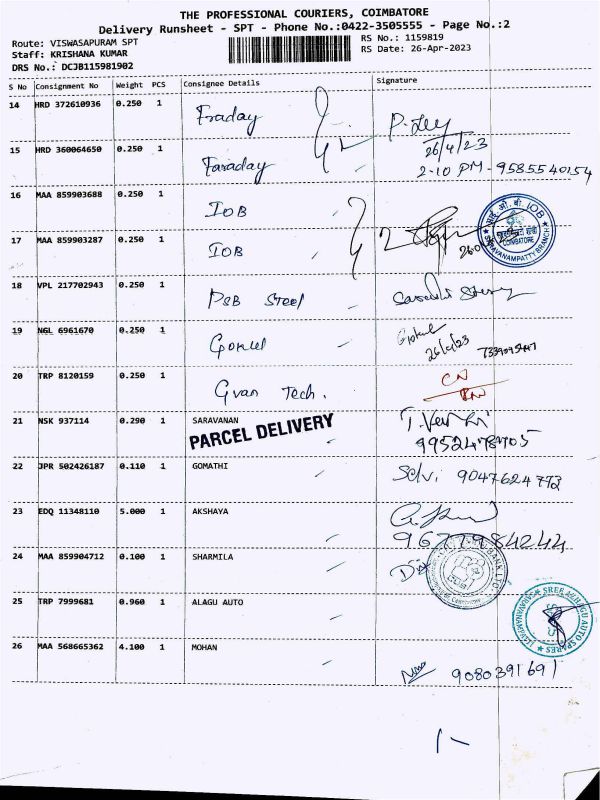 THE PROFESSIONAL COURIERS, COIMBATORE
Delivery Runsheet - SPT - Phone No.:0422-3505555 - Page No.:2
Route: VISWASAPURAM SPT
RS No.: 1159819
Staff: KRISHANA KUMAR
RS Date: 26-Apr-2023
DRS No.: DCJB115981902
S No Consignment No Weight PCS Consignee Details Signature
14 HRD 372610936 0.250 1 Fraday
26/4/23
15 HRD 360064650 0.250 1 Faraday 2-10 PM - 9585540154
16 MAA 859903688 0.250 1 IOB
17 MAA 859903287 0.250 1 IOB
IOB
COIMBATORE
SARAVANAMPATTY BRANCH
18 VPL 217702943 0.250 1 PSB Steel
19 NGL 6961670 0.250 1 Gokul Gokul
26/4/23
20 TRP 8120159 0.250 1 Gvan Tech. CN
21 NSK 937114 0.290 1 SARAVANAN
PARCEL DELIVERY
9952478705
22 JPR 502426187 0.110 1 GOMATHI Selvi 9047624772
23 EDQ 11348110 5.000 1 AKSHAYA
9677984244
24 MAA 859904712 0.100 1 SHARMILA
25 TRP 7999681 0.960 1 ALAGU AUTO
SREE ALAGU AUTO SPARES
26 MAA 568665362 4.100 1 MOHAN
9080391691